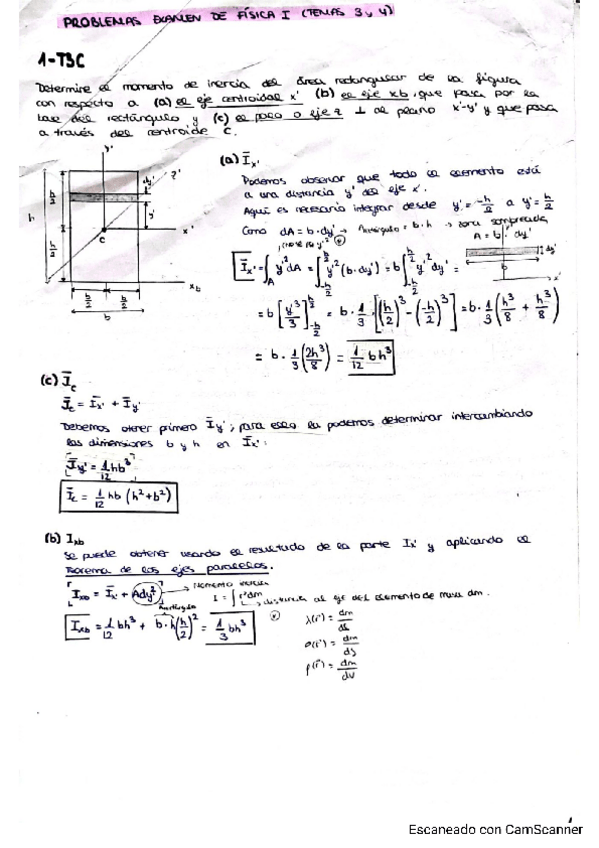 PROBLEMAS EXAMEN DE FÍSICA I (TEMAS 3 y 4)
1-T3C
Determine el momento de inercia del área rectangular de la figura
con respecto a (a) el eje centroidal x' (b) el eje xb, que pasa por la
base del rectángulo y (c) el polo o eje z ⊥ al plano x'-y' y que pasa
a través del centroide C.
(a) Ī x'
Podemos observar que todo el elemento está
a una distancia y' del eje x'.
Aquí es necesario integrar desde y' = -h/2 a y' = h/2
Como dA = b·dy' → Arectángulo = b·h → zona sombreada
A = b·dy'
y'
dy'
z'
y'
h
h/2
h/2
C
x'
xb
b/2
b/2
b
dy'
b
x'
Ī x' = ∫A y'² dA = ∫-h/2^h/2 y'² (b·dy') = b ∫-h/2^h/2 y'² dy' =
= b [y'³/3]-h/2^h/2 = b · 1/3 · [(h/2)³ - (-h/2)³] = b · 1/3 (h³/8 + h³/8)
= b · 1/3 (2h³/8) = 1/12 bh³
(c) Īc
Īc = Īx' + Īy'
Debemos obtener primero Īy', para ello la podemos determinar intercambiando
las dimensiones b y h en Īx':
Īy' = 1/12 hb³
Īc = 1/12 hb (h² + b²)
(b) Ixb
Se puede obtener usando el resultado de la parte Ix' y aplicando el
teorema de los ejes paralelos.
Ixb = Īx' + Ady² → Momento inercia
I = ∫r²dm
→ distancia al eje del elemento de masa dm.
Arectángulo
Ixb = 1/12 bh³ + b·h (h/2)² = 1/3 bh³
λ(r) = dm/dl
σ(r) = dm/ds
ρ(r) = dm/dv
1
Escaneado con CamScanner